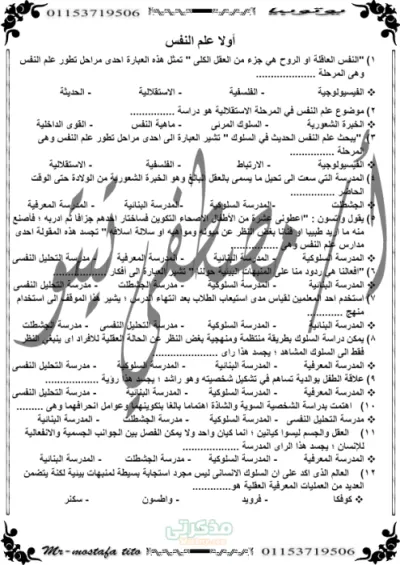 01153719506 يوتوبيا
أولا علم النفس
١) "النفس العاقلة او الروح هي جزء من العقل الكلى" تمثل هذه العبارة احدى مراحل تطور علم النفس
وهى المرحلة ......................
❖ الفيسيولوجية - الفلسفية - الاستقلالية - الحديثة
٢) موضوع علم النفس في المرحلة الاستقلالية هو دراسة ....................
❖ الخبرة الشعورية - السلوك المرئى - ماهية النفس - القوى الداخلية
٣) "يبحث علم النفس الحديث في السلوك " تشير العبارة الى احدى مراحل تطور علم النفس وهى
المرحلة ................
❖ الفيسيولوجية - الارتباط - الفلسفية - الاستقلالية
٤) المدرسة التي سعت الى تحيل ما يسمى بالعقل البالغ وهو الخبرة الشعورية من الولادة حتى الوقت
الحاضر ....................
❖ الجشطلت - المدرسة السلوكية - المدرسة البنائية - المدرسة المعرفية
٥) يقول واتسون : "اعطونى عشرة من الأطفال الاصحاء التكوين فساختار احدهم جزافا ثم ادربه ؛ فأصنع
منه ما اريد طبيبا او فنانا بغض النظر عن ميوله ومواهبه او سلالة اسلافه " تجسد هذه المقولة احدى
مدارس علم النفس وهى ..............
❖ المدرسة السلوكية - المدرسة المعرفية - المدرسة البنائية - مدرسة التحليل النفسى
٦) "أفعالنا هي ردود منا على المنبهات البيئية حولنا " تشير العبارة الى أفكار
❖ المدرسة البنائية - المدرسة السلوكية - مدرسة الجشطلت - مدرسة التحليل النفسى
٧) استخدم احد المعلمين لقياس مدى استيعاب الطلاب بعد انتهاء الدرس ؛ يشير هذا الموقف الى استخدام
منهج ................
❖ المدرسة البنائية - المدرسة السلوكية - مدرسة التحليل النفسى - مدرسة الجشطلت
٨) يمكن دراسة السلوك بطريقة منتظمة ومنهجية بغض النظر عن الحالة العقلية للأفراد اى ينبغى النظر
فقط الى السلوك المشاهد ؛ يجسد هذا راى ..................
❖ المدرسة المعرفية - المدرسة البنائية - المدرسة السلوكية - مدرسة التحليل النفسى
٩) علاقة الطفل بوالدية تساهم في تشكيل شخصيته وهو راشد ؛ يجسد هذا رؤية ................
❖ المدرسة البنائية - المدرسة المعرفية - المدرسة السلوكية - مدرسة التحليل النفسى
١٠) اهتمت بدراسة الشخصية السوية والشاذة اهتماما بالغا بتكوينهما وعوامل انحرافهما وهى ......
❖ مدرسة التحليل النفسى - المدرسة السلوكية - مدرسة الجشطلت - المدرسة البنائية
١١) العقل والجسم ليسوا كيانين ؛ انما كيان واحد ولا يمكن الفصل بين الجوانب الجسمية والانفعالية
للإنسان ؛ يجسد هذا الراى المدرسة ..................
❖ المدرسة المعرفية - المدرسة السلوكية - مدرسة الجشطلت - المدرسة البنائية
١٢) العالم الذى اكد على ان السلوك الانسانى ليس مجرد استجابة بسيطة لمنبهات بيئية لكنة يتضمن
العديد من العمليات المعرفية العقلية هو ..............
❖ كوفكا - فرويد - واطسون - سكنر
مذكرتى
Mr-mostafa tito 01153719506